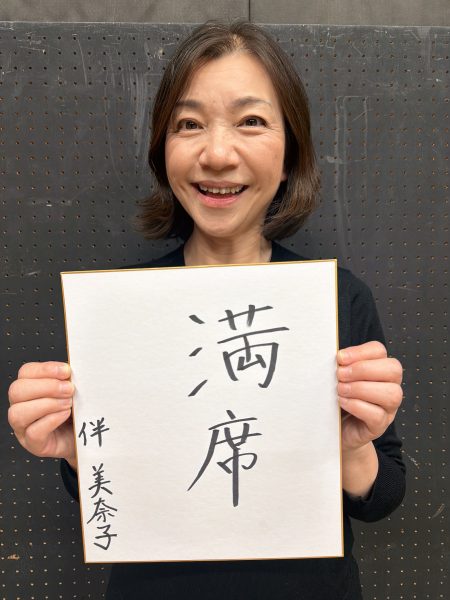 満席
伴 美奈子